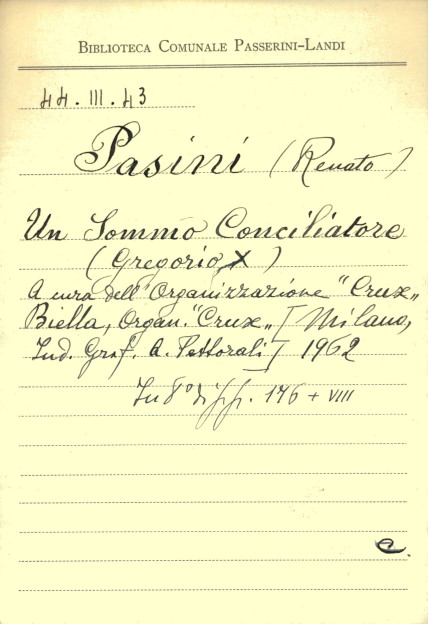 BIBLIOTECA COMUNALE PASSERINI-LANDI
44. III. 43
Pasini (Renato)
Un Sommo Conciliatore
(Gregorio X)
A cura dell'Organizzazione "Crux„
Biella, Organ. "Crux„ [Milano,
Ind. Graf. A. Pettorali] 1962
In 8° di pp. 176 + VIII